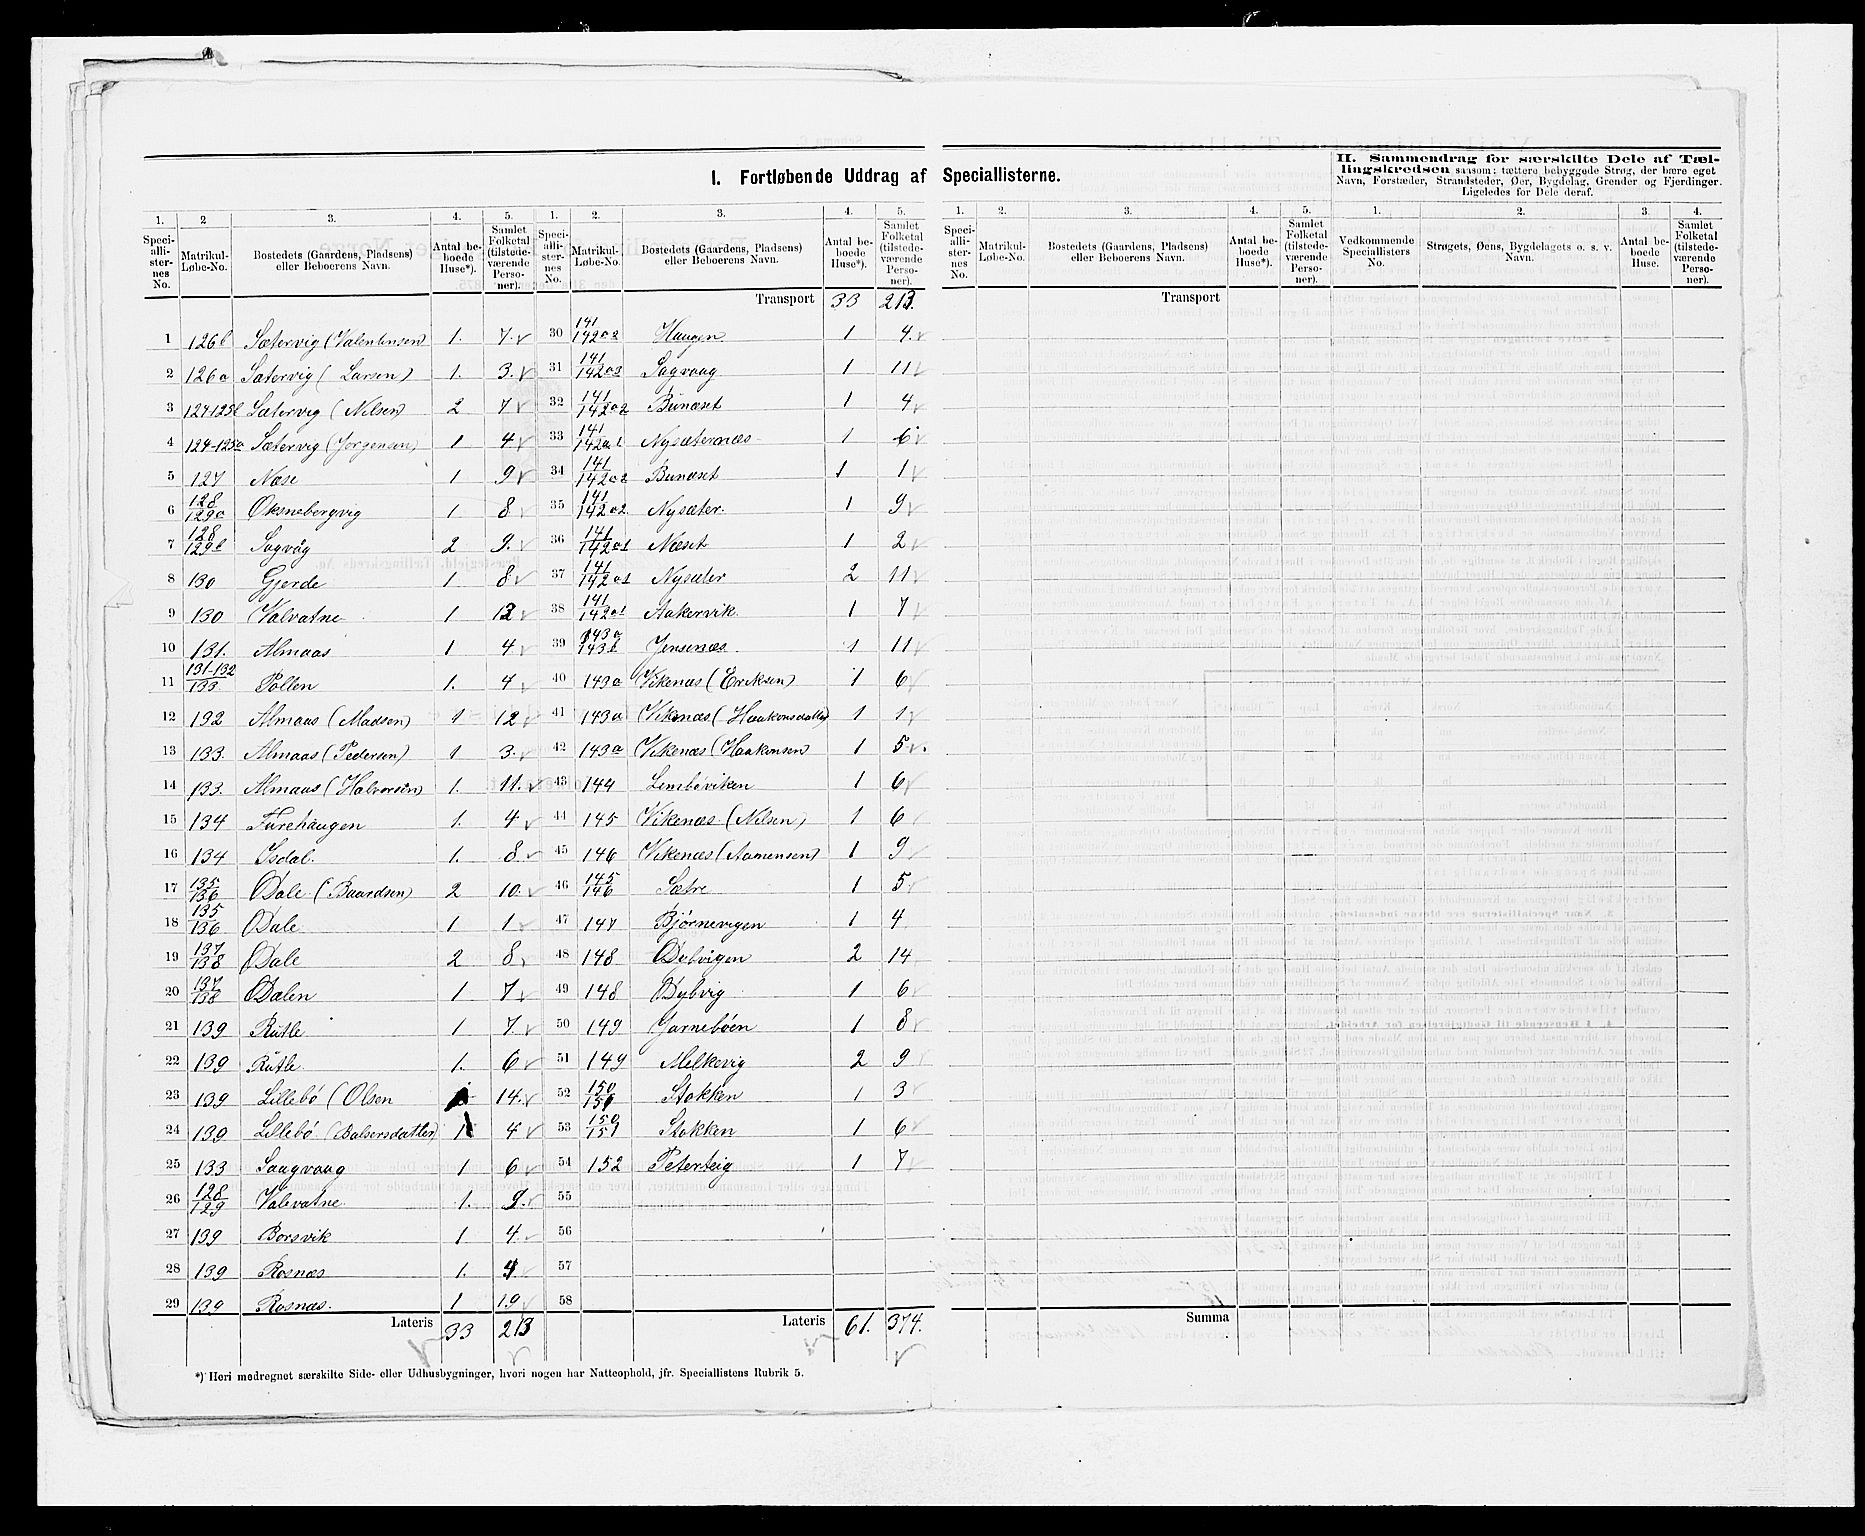 I. Fortløbende Uddrag af Speciallisterne.
II. Sammendrag for særskilte Dele af Tællingskredsen saasom: tættere bebyggede Strøg, der bære eget Navn, Forstæder, Strandsteder, Øer, Bygdelag, Grender og Fjerdinger. Ligeledes for Dele deraf.
1. 2 3. 4. 5. 1. 2. 3. 4. 5. 1. 2. 3. 4. 5. 1. 2. 3. 4.
Speciallisternes No. Matrikul-Løbe-No. Bostedets (Gaardens, Pladsens) eller Beboerens Navn. Antal beboede Huse*). Samlet Folketal (tilstedeværende Personer).
Speciallisternes No. Matrikul-Løbe-No. Bostedets (Gaardens, Pladsens) eller Beboerens Navn. Antal beboede Huse*). Samlet Folketal (tilstedeværende Personer).
Speciallisternes No. Matrikul-Løbe-No. Bostedets (Gaardens, Pladsens) eller Beboerens Navn. Antal beboede Huse*). Samlet Folketal (tilstedeværende Personer).
Vedkommende Speciallisters No. Strøgets, Øens, Bygdelagets o. s. v. Navn. Antal beboede Huse. Samlet Folketal (tilstedeværende Personer).
Transport 33 213. Transport
1 126b Sætervig (Valentinsen) 1. 7.
2 126a Sætervig (Larsen) 1. 3.
3 124 125b Sætervig (Nilsen) 2 7
4 124-125a Sætervig (Jørgensen) 1 4
5 127 Næse 1 9
6 128/129a Øksnebergvig 1 8
7 128/129b Sagvåg 2 9.
8 130 Gjerde 1 8
9 130 Valvatne 1 12
10 131. Almaas 1 4
11 131-132/133 Pollen 1. 4
12 132 Almaas (Madsen) 1. 12
13 133. Almaas (Pedersen) 1 3.
14 133. Almaas (Halvorsen) 1. 11.
15 134 Furehaugen 1. 4
16 134 Isdal. 1. 8
17 135/136 Dale (Baardsen) 2 10.
18 135/136 Dale 1 1
19 137/138 Dale 2 8
20 137/138 Dalen 1 7
21 139 Rutle 1 7
22 139 Rutle 1. 6
23 139 Lillebø (Olsen 14.
24 139 Lillebø (Balsersdatter) 1 4
25 133 Saagvaag 1 6
26 128/129 Valevatne 1. 9.
27 139 Borsvik 1 4.
28 139 Rosnæs 1. 4
29 139 Rosnæs. 1 19
Lateris 33 213
30 141/142a2 Haugen 1 4.
31 141/142a3 Sagvaag 1 11
32 141/142a2 Bunæset 1 4
33 141/142a1 Nysæternæs 1 6
34 141/142a2 Bunæset 1 1
35 141/142a2 Nysæter. 1 9
36 141/142a1 Næset 1 2
37 141/142a1 Nysæter 2 11
38 141/142a1 Aakervik 1 7
39 143a/143b Jensenæs 1 11
40 143a Vikenæs (Eriksen) 1 6
41 143a Vikenæs (Haakonsdatter) 1 1
42 143a Vikenæs (Haakonsen) 1 5
43 144 Lembøviken 1 6
44 145 Vikenæs (Nilsen) 1 6
45 146 Vikenæs (Aamensen) 1 9
46 145/146 Sætre 1 5
47 147 Bjørnevigen 1 4
48 148 Dybvigen 2 14
49 148 Dybvig 1 6
50 149 Jarnebøen 1 8
51 149 Melkevig 2 9
52 150/151 Stokken 1 3
53 150/151 Stokken 1 6
54 152 Peterteig 1 7
55
56
57
58
Lateris 61. 374.
Summa
*) Heri medregnet særskilte Side- eller Udhusbygninger, hvori nogen har Natteophold, jfr. Speciallistens Rubrik 5.